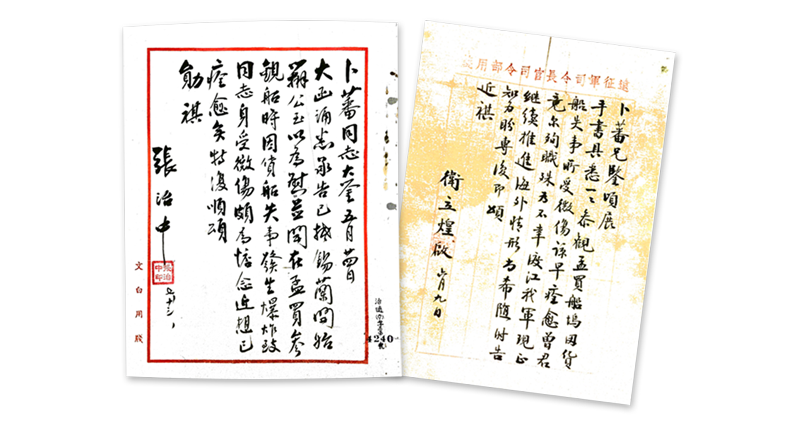 卜蕃同志大鑒五月廿日
大函誦悉承告已抵錫蘭開始
辦公至以為慰並聞在孟買參
觀船時因貨船失事發生爆炸致
同志身受微傷頗為懸念近想已
痊愈矣特復順頌
勛祺
張治中
張治中印
文白用牋
4240
遠征軍司令長官司令部用
卜蕃兄鑒頃展
手書具悉一一參觀孟買船塢因貨
船失事所受微傷諒早痊愈曾君
竟尔殉職殊為不幸渡江我軍現正
繼續推進海外情形尚希隨時告
知為盼專復即頌
近祺
衛立煌啟 六月九日